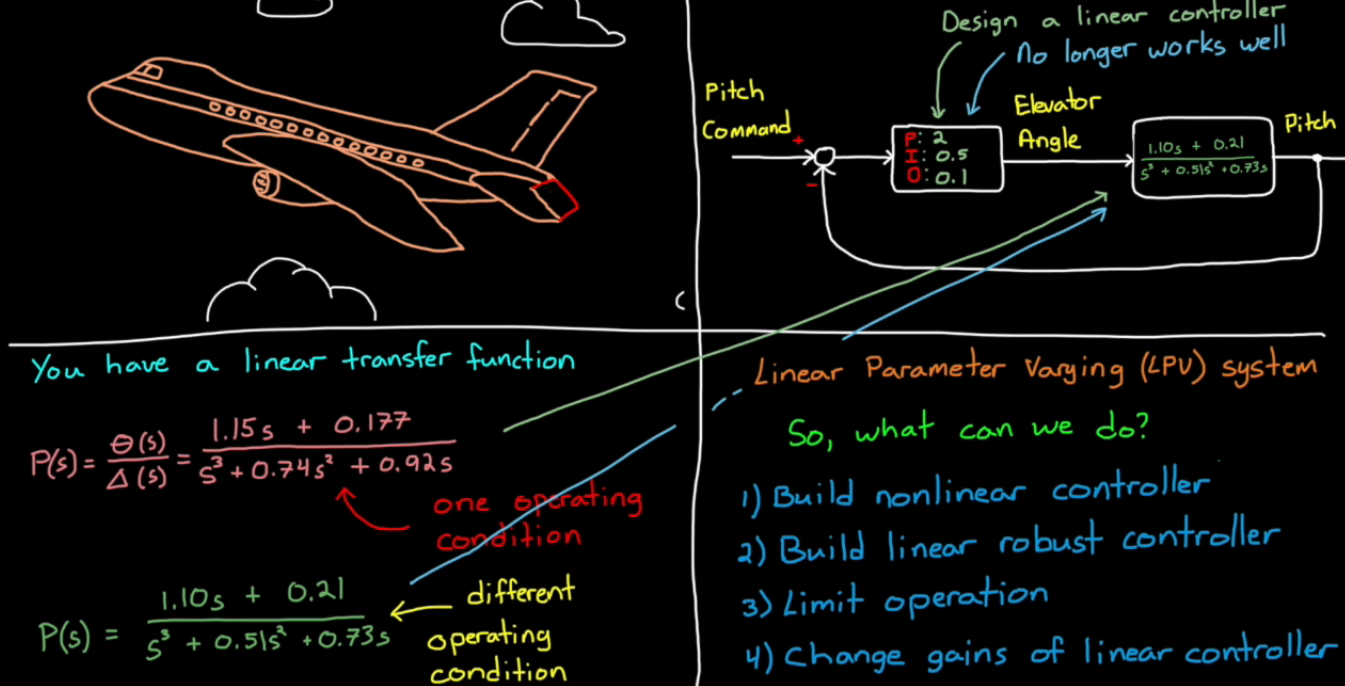 Design a linear controller
No longer works well
Pitch
Command
+
-
P: 2
I: 0.5
D: 0.1
Elevator
Angle
1.10s + 0.21
s³ + 0.51s² + 0.73s
Pitch
You have a linear transfer function
P(s) = Θ(s)/Δ(s) = 1.15s + 0.177
s³ + 0.74s² + 0.92s
one operating
condition
P(s) = 1.10s + 0.21
s³ + 0.51s² + 0.73s
different
operating
condition
Linear Parameter Varying (LPV) system
So, what can we do?
1) Build nonlinear controller
2) Build linear robust controller
3) Limit operation
4) Change gains of linear controller